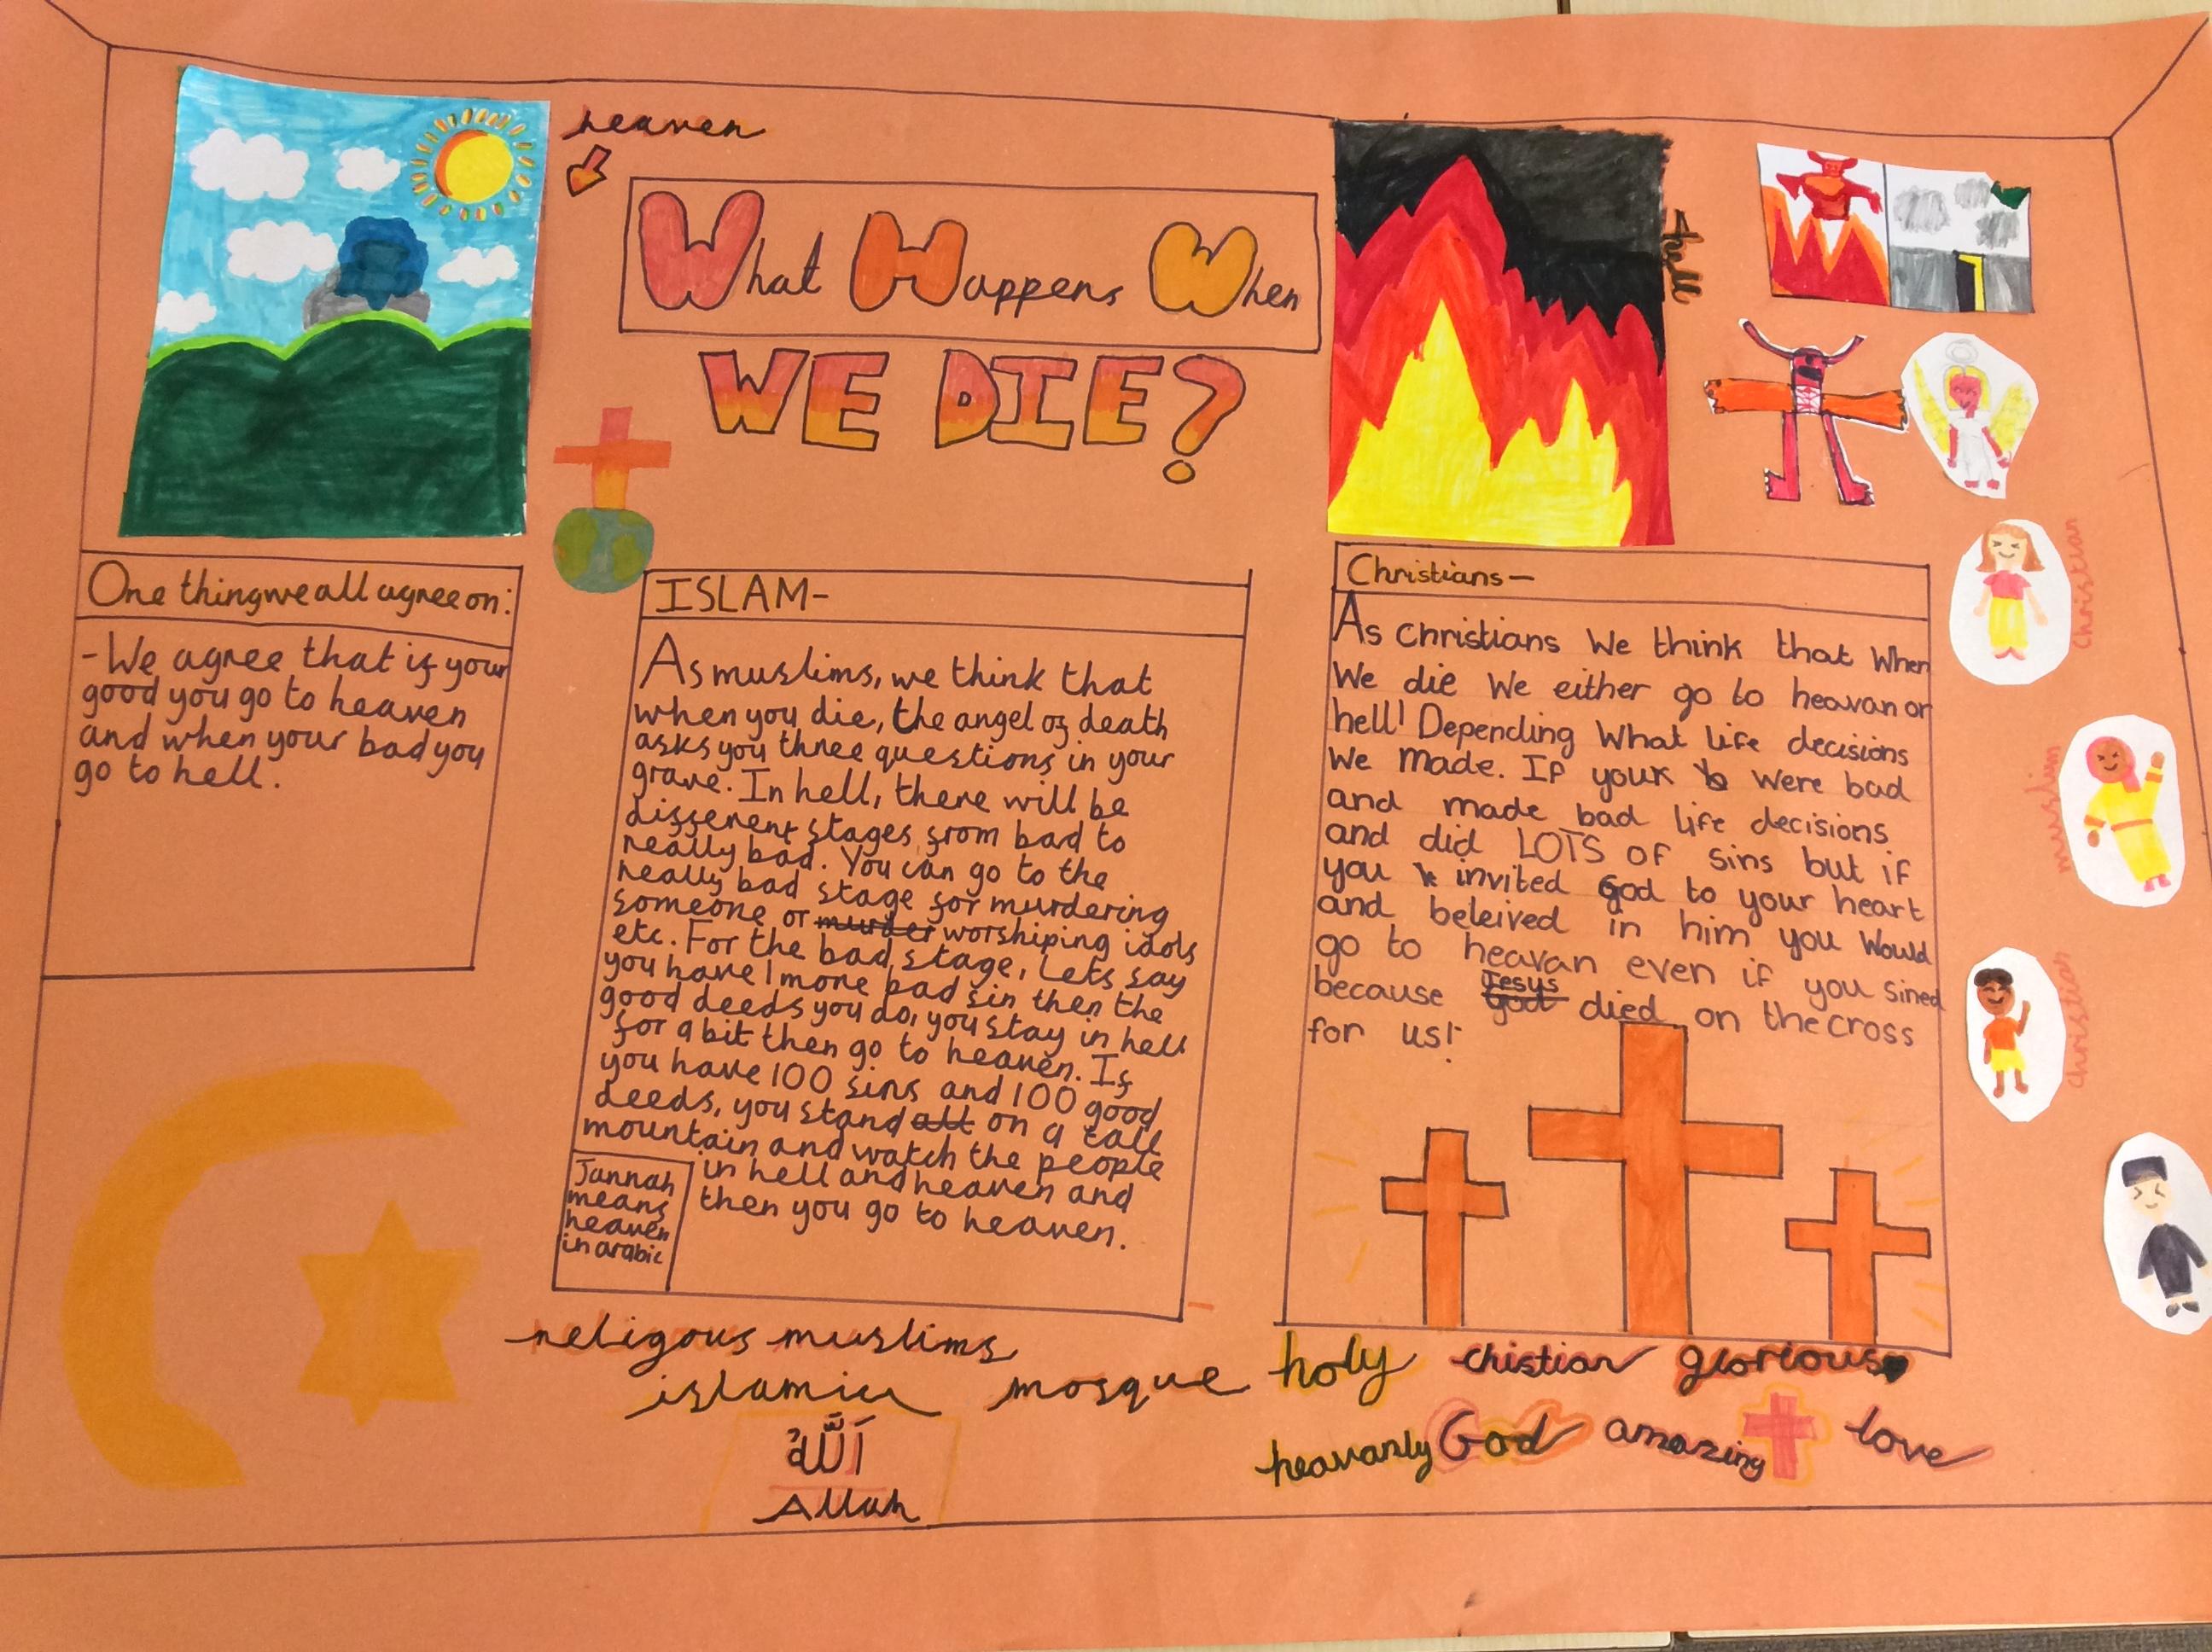 heaven
What Happens When
WE DIE?
hell
One thing we all agree on:
- We agree that if your
good you go to heaven
and when your bad you
go to hell.
ISLAM-
As muslims, we think that
when you die, the angel of death
asks you three questions in your
grave. In hell, there will be
different stages from bad to
really bad. You can go to the
really bad stage for murdering
someone or murder worshiping idols
etc. For the bad stage, Lets say
you have 1 more bad sin then the
good deeds you do, you stay in hell
for a bit then go to heaven. If
you have 100 sins and 100 good
deeds, you stand on a tall
mountain and watch the people
in hell and heaven and
then you go to heaven.
Jannah
means
heaven
in arabic
Christians-
As Christians We think that When
We die We either go to heavan or
hell! Depending What life decisions
We made. If your were bad
and made bad life decisions
and did LOTS OF sins but if
you invited God to your heart
and beleived in him you Would
go to heavan even if you sined
because God Jesus died on the cross
for us!
Christian
muslim
christian
religous muslims
islamic mosque
اَللّٰهُ
Allah
holy chistian glorious
heavanly God amazing love